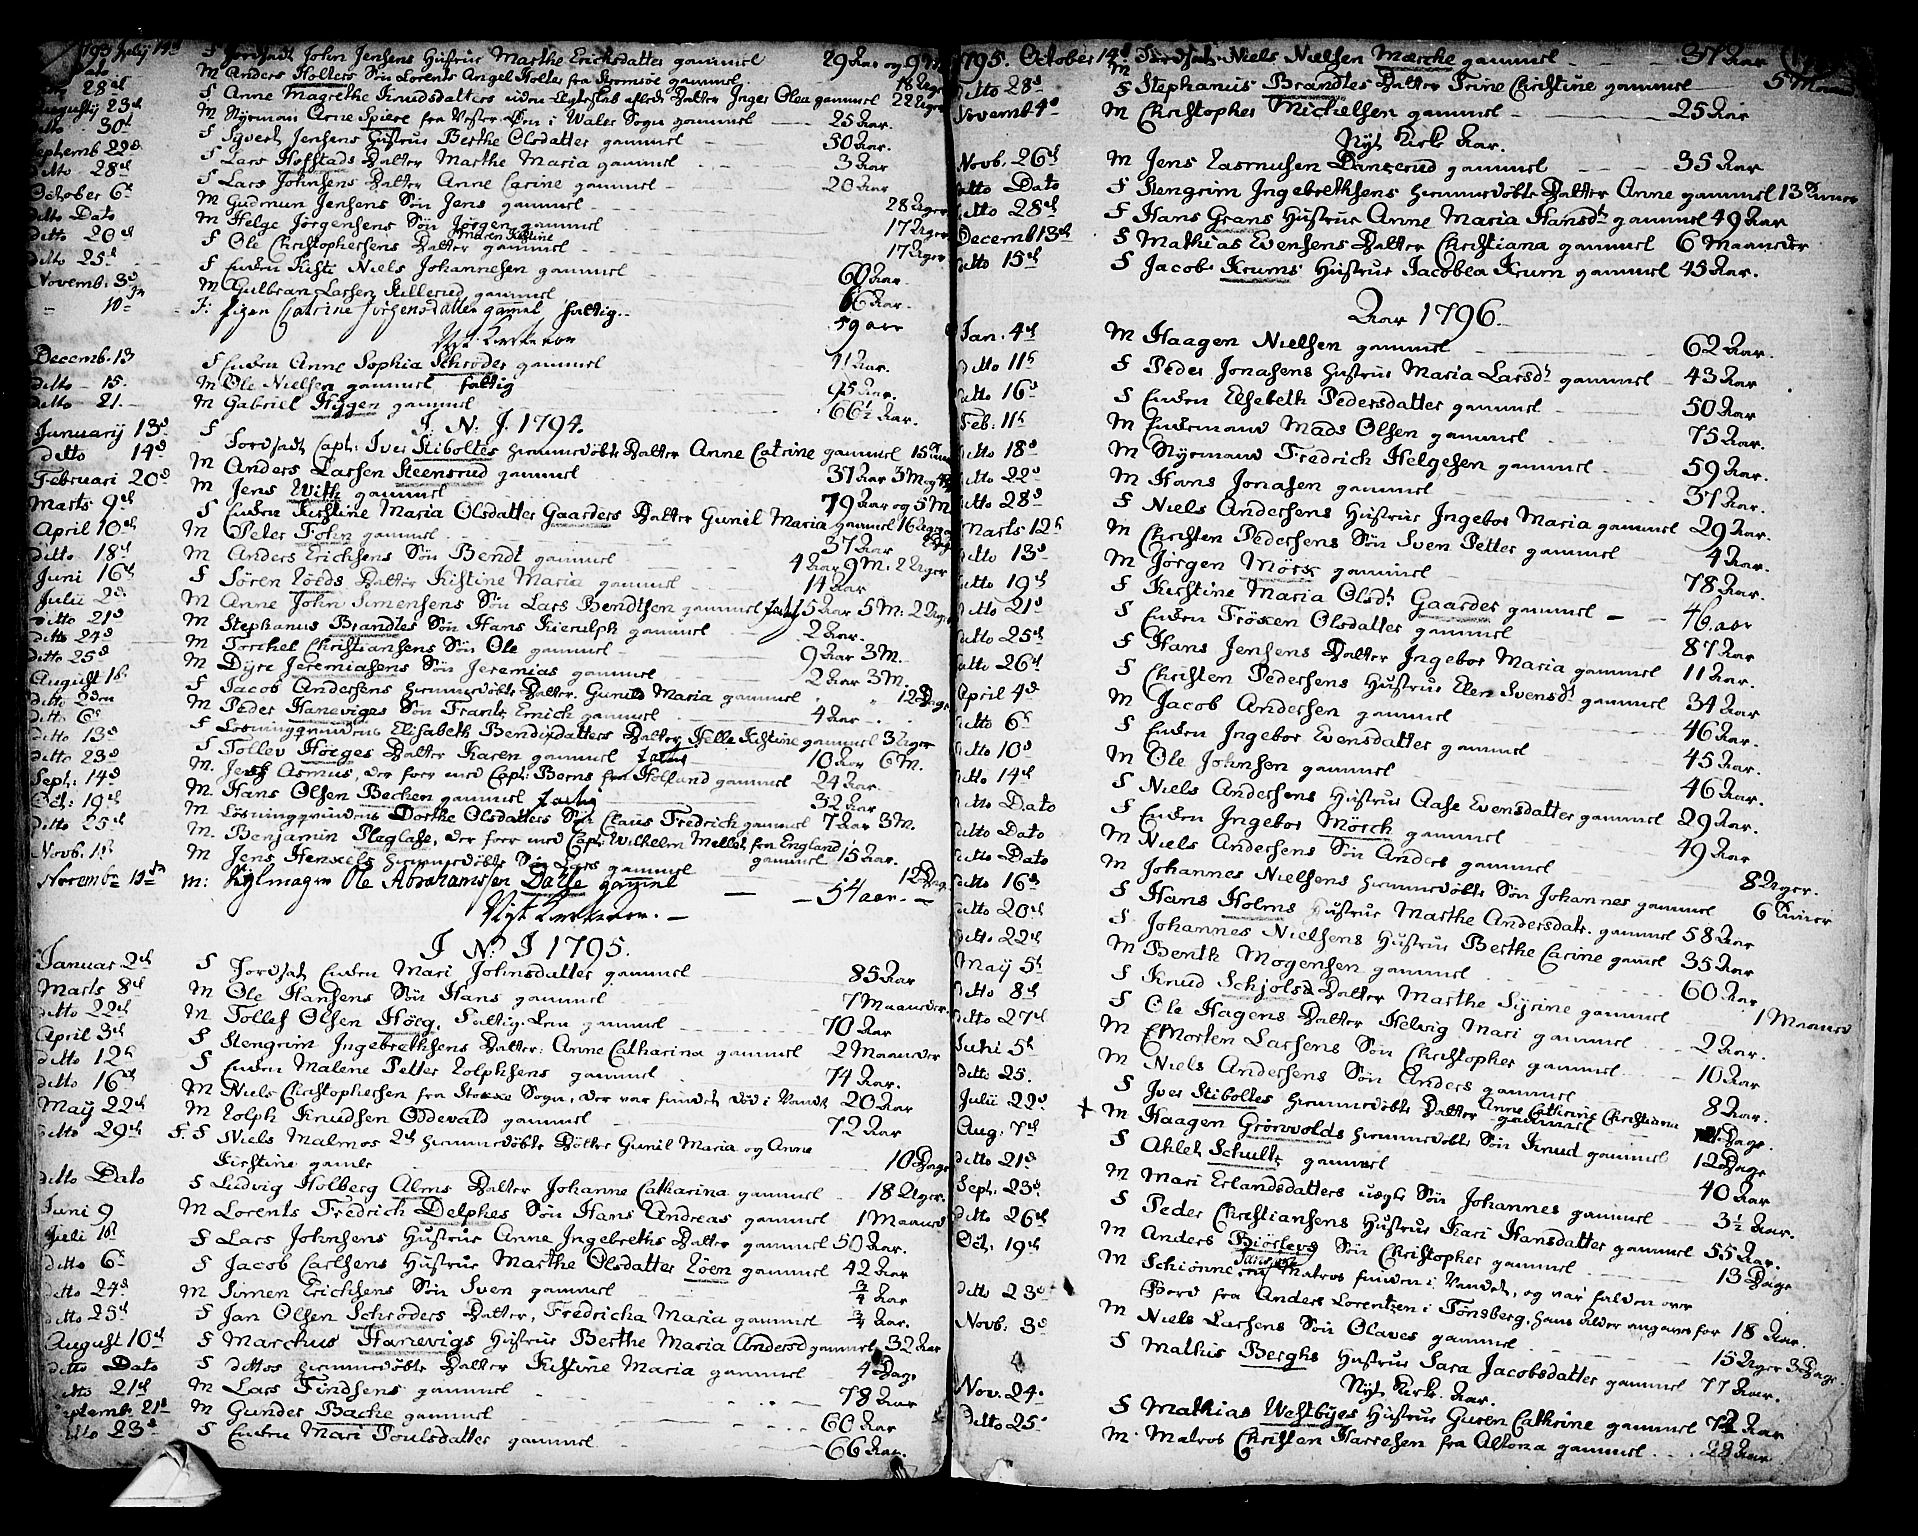 1793 July 14d S Jordsat John Jensens Hustrue Marthe Erichsdatter gammel 29 Aar og 9 M
Dato M Anders Holters Sön Lorents Angel Holter fra Stromsöe gammel 18 Uger
ditto 28d S Anne Magrethe Knudsdatters uden Egteskab aflede Datter Inger Olea gammel 22 Uger
Augustij 23d M Styrman Arne Spiere fra Vester Øen i Wales Sogn gammel 25 Aar.
ditto 30d S Syvert Jensens Hustrue Berthe Olsdatter gammel 50 Aar.
Septemb 22d S Lars Hofstads Datter Marthe Maria gammel 3 Aar
ditto 28d S Lars Johnsens Datter Anne Carine gammel 20 Aar
October 6t M Gudmun Jensens Sön Jens gammel 28 Uger
ditto Dato M Helge Jörgensens Sön Jörgen gammel 17 Uger
ditto 20d S Ole Christophersens Datter Maren Kistine gammel 17 Uger
ditto 25d S Enken Kisti Niels Johannesen gammel 60 Aar
Novemb. 3d M Gulbran Larsen Killerud gammel 66 Aar.
10 S: Pigen Catrine Jörgensdatter gamel fattig. 59 aar
Nyt Kirkeaar
Decemb. 13 S Enken Anne Sophia Schröder gammel 71 Aar.
ditto 15. M Ole Nielsen gammel fattig 95 Aar.
ditto 21. M Gabriel Hygen gammel 66½ Aar.
J. N. J. 1794.
Januarij 13d S Jordsadt Capt: Iver Stiboltes hiemmedöbte Datter Anne Catrine gammel 15
ditto 14d M Anders Larsen Steensrud gammel 37 Aar 3 M og
Februari 20d M Jens With gammel 79 Aar og 5 M
Marts 9d S Enken Kirstine Maria Olsdatter Gaarders Datter Gunil Maria gammel 16 Uger
April 10d M Peter Fohn gammel 37 Aar
ditto 18d M Anders Erichsens Sön Bendt gammel 4 Aar 9 M: 2 Uger
Juni 16d S Sören Zoeds Datter Kistine Maria gammel 14 Aar
Julii 2d M Anne John Simensens Sön Lars Bendtsen gammel 5 Aar 5 M: 2 Uger
ditto 21d M Stephanus Brandtes Sön Hans Kierulph gammel 2 Aar.
ditto 24d M Torchel Christiansens Sön Ole gammel 9 Aar 3 M.
ditto 25d M Dyre Jeremiasens Sön Jeremias gammel 2 Aar 3 M.
August 1t S Jacob Andersens hiemmedöbte Datter Gunild Maria gammel 12 Dage
ditto M Peder Haneviges Sön Frantz Ernich gammel 4 Aar
ditto 6t S Elisabeth Bendixdatters Datter Helle Kistine gammel 3 Uger
ditto 13d S Tollev Höegs Datter Karen gammel 10 Aar 6 M.
ditto 23d M. Asmus, der foer med Capt: Berns fra Holland gammel 24 Aar.
Sept: 14d M. Hans Olsen Bechen gammel 32 Aar
Oct: 19d M Dorthe Olsdatters Sön Claus Fredrich gammel 7 Aar 3 M.
ditto 25d M. Benjamin Plaglase, der foer med Capt: Wilhelm Mellet fra England gammel 15 Aar.
Novb. 1t M Jens Henxels hiemmedöbte Sön Lars gammel 12 Dag.
Novembr 19d M: Ole Abrahamssen Dalse gammel 54 aar.
Nyt Kirkeaar.
J N. J 1795.
Januar 2d S Jordsat Enken Mari Johnsdatter gammel 85 Aar
Marts 8d M Ole Hansens Sön Hans gammel 7 Maaneder.
ditto 22d M Tollef Olsen Höeg, Fattig Lem gammel 70 Aar
April 3d S Stengrim Ingebrethsens Datter: Anne Catharina gammel 2 Maaneder
ditto 12d S Enken Malene Petter Rolphsens gammel 74 Aar.
ditto 16d M Niels Christophersen fra Stokke Sogn, der var funden död i Vandet 20 Aar
May 22d M Rolph Knudsen Oddevald gammel 72 Aar
ditto 29d S. S Niels Malmös 2de hiemmedöbte Dötter Gunil Maria og Anne
Kirstine gamle 10 Dage
ditto Dato S Ludvig Holberg Alms Datter Johanne Catharina gammel 18 Uger.
Juni 9 M Lorents Fredrich Delphes Sön Hans Andreas gammel 1 Maaned
Juli 1t S Lars Johnsens Hustrue Anne Ingebreths Datter gammel 50 Aar.
ditto 6t S Jacob Carlsens Hustrue Marthe Olsdatter Zöen gammel 42 Aar
ditto 24d M Simen Erichsens Sön Sven gammel ¾ Aar
ditto 25d S Jan Olsen Schröders Datter, Fredricha Maria gammel ¾ Aar.
August 10d S Marchus Hanevigs Hustrue Berthe Maria Andersd gammel 32 Aar
ditto Dato S dittos hiemmedöbte Datter Kistine Maria gammel 4 Dage
ditto 21d M Lars Findsens gammel 78 Aar
Septemb. 21d M Gunder Backe gammel 60 Aar
ditto 23d S Enken Mari Poulsdatter gammel 66 Aar.
1795. October 14d M Jordsat Niels Nielsen Marche gammel 37 Aar
ditto 28d S Stephanus Brandtes Datter Trine Christine gammel 5 Maan
Novemb 4d M Christopher Michelsen gammel 25 Aar
Nyt Kirk Aar.
Novb. 26d M Jens Rasmusen Dancerud gammel 35 Aar
ditto Dato S Stengrim Ingebrethsens hiemmedöbte Datter Anne gammel 13 Timer
ditto 28d S Hans Grans Hustrue Anne Maria Hansdr gammel 49 Aar
Decemb 13d S Mathias Evensens Datter Christiana gammel 6 Maaneder
ditto 15d S Jacob Krums Hustrue Jacobea Krum gammel 45 Aar.
Aar 1796.
Jan. 4d M Haagen Nielsen gammel 62 Aar.
ditto 11t S Peder Jonasens Hustrue Maria Larsdr gammel 43 Aar
ditto 16d S Enken Elsebeth Pedersdatter gammel 50 Aar
Feb. 11t M Enkemand Mads Olsen gammel 75 Aar.
ditto 18d M Styrmand Fredrich Helgesen gammel 59 Aar.
ditto 22d M Hans Jonasen gammel 37 Aar.
ditto 28d S Niels Andersens Hustrue Ingebor Maria gammel 29 Aar.
Marts 12t M Christen Pedersens Sön Sven Petter gammel 4 Aar.
ditto 13d M Jörgen Mörk gammel 78 Aar.
ditto 19d S Kirstine Maria Olsdr Gaarder gammel 46 aar
ditto 21d S Enken Fröken Olsdatter gammel 87 Aar
ditto 25d S Hans Jensens Datter Ingebor Maria gammel 11 Aar.
ditto 26d S Christen Pedersens Hustrue Elen Svensdr gammel 34 Aar
April 4d M Jacob Andersen gammel 46 Aar.
ditto 6t S Enken Ingebor Evensdatter gammel 45 Aar.
ditto 10d M Ole Johnsen gammel 46 Aar.
ditto 14d S Niels Andersens Hustrue Aase Evensdatter gammel 29 Aar.
ditto Dato S Enken Ingebor Mörch gammel 49 Aar
ditto Dato M Niels Andersens Sön Anders gammel 8 Uger.
ditto Dato M Johannes Nielsens hiemmedöbte Sön Johannes gammel 6 Timer
ditto 16d S Hans Holms Hustrue Marthe Andersdatr. gammel 58 Aar
ditto 20d S Johannes Nielsens Hustrue Berthe Carine gammel 35 Aar
ditto 22d M Benth Mogensen gammel 60 Aar
May 5t S Knud Schjolsd Datter Marthe Syrine gammel 1 Maaned
ditto 8d S Ole Hagens Datter Helvig Mari gammel 2 Aar.
ditto 27d M Morten Larsens Sön Christopher gammel 10 Aar
Juni 5t M Niels Andersens Sön Anders gammel 8 Aar.
ditto 25. S Iver Stiboltes hiemmedöbte Datter Anne Cathrine Christiana gammel Dage
Julii 22d + M Haagen Grönvolds hiemmedöbte Sön Knud gammel 12 Dage
Aug. 7d S Ahlet Schult gammel 40 Aar
ditto 21d M Mari Erlandsdatters uægte Sön Johannes gammel 3½ Aar.
Sept. 23d. S Peder Christiansens Hustrue Kari Hansdatter gammel 55 Aar.
ditto 26d M Anders Sön Christopher gammel 13 Dage
Oct. 19d M Schiönne Matros funden i Vandet, og var falden over
Bord fra Anders Lorentzen i Tönsberg, hans alder angaves for 18 Aar.
ditto 23d M Niels Larsens Sön Olaves gammel 15 Uger 3 Dage
Novb: 3d S Mathis Berghs Hustrue Sara Jacobsdatter gammel 77 Aar.
Nyt Kirk. Aar.
Nov. 24. S Mathias Westbyes Hustrue Guren Cathrine gammel 72 Aar
ditto 25 M. Matros Christen Harresen fra Altona gammel 28 Aar